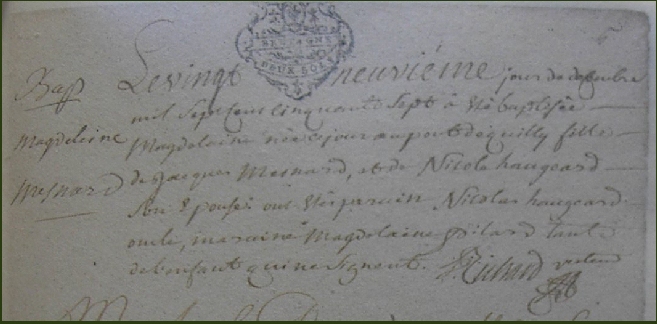 Bapt
Magdeleine
Mesnard
DEUX SOLS
Le vingt neuvième jour de decembre
mil sept cent cinquante sept à été baptisée
Magdelaine née ce jour au pont de quilly fille
de Jacques Mesnard, et de Nicole haugeard
son Epouse ont été parain Nicolas haugeard
oncle, maraine Magdelaine Gilard tante
de l'enfant qui ne signent. Richard